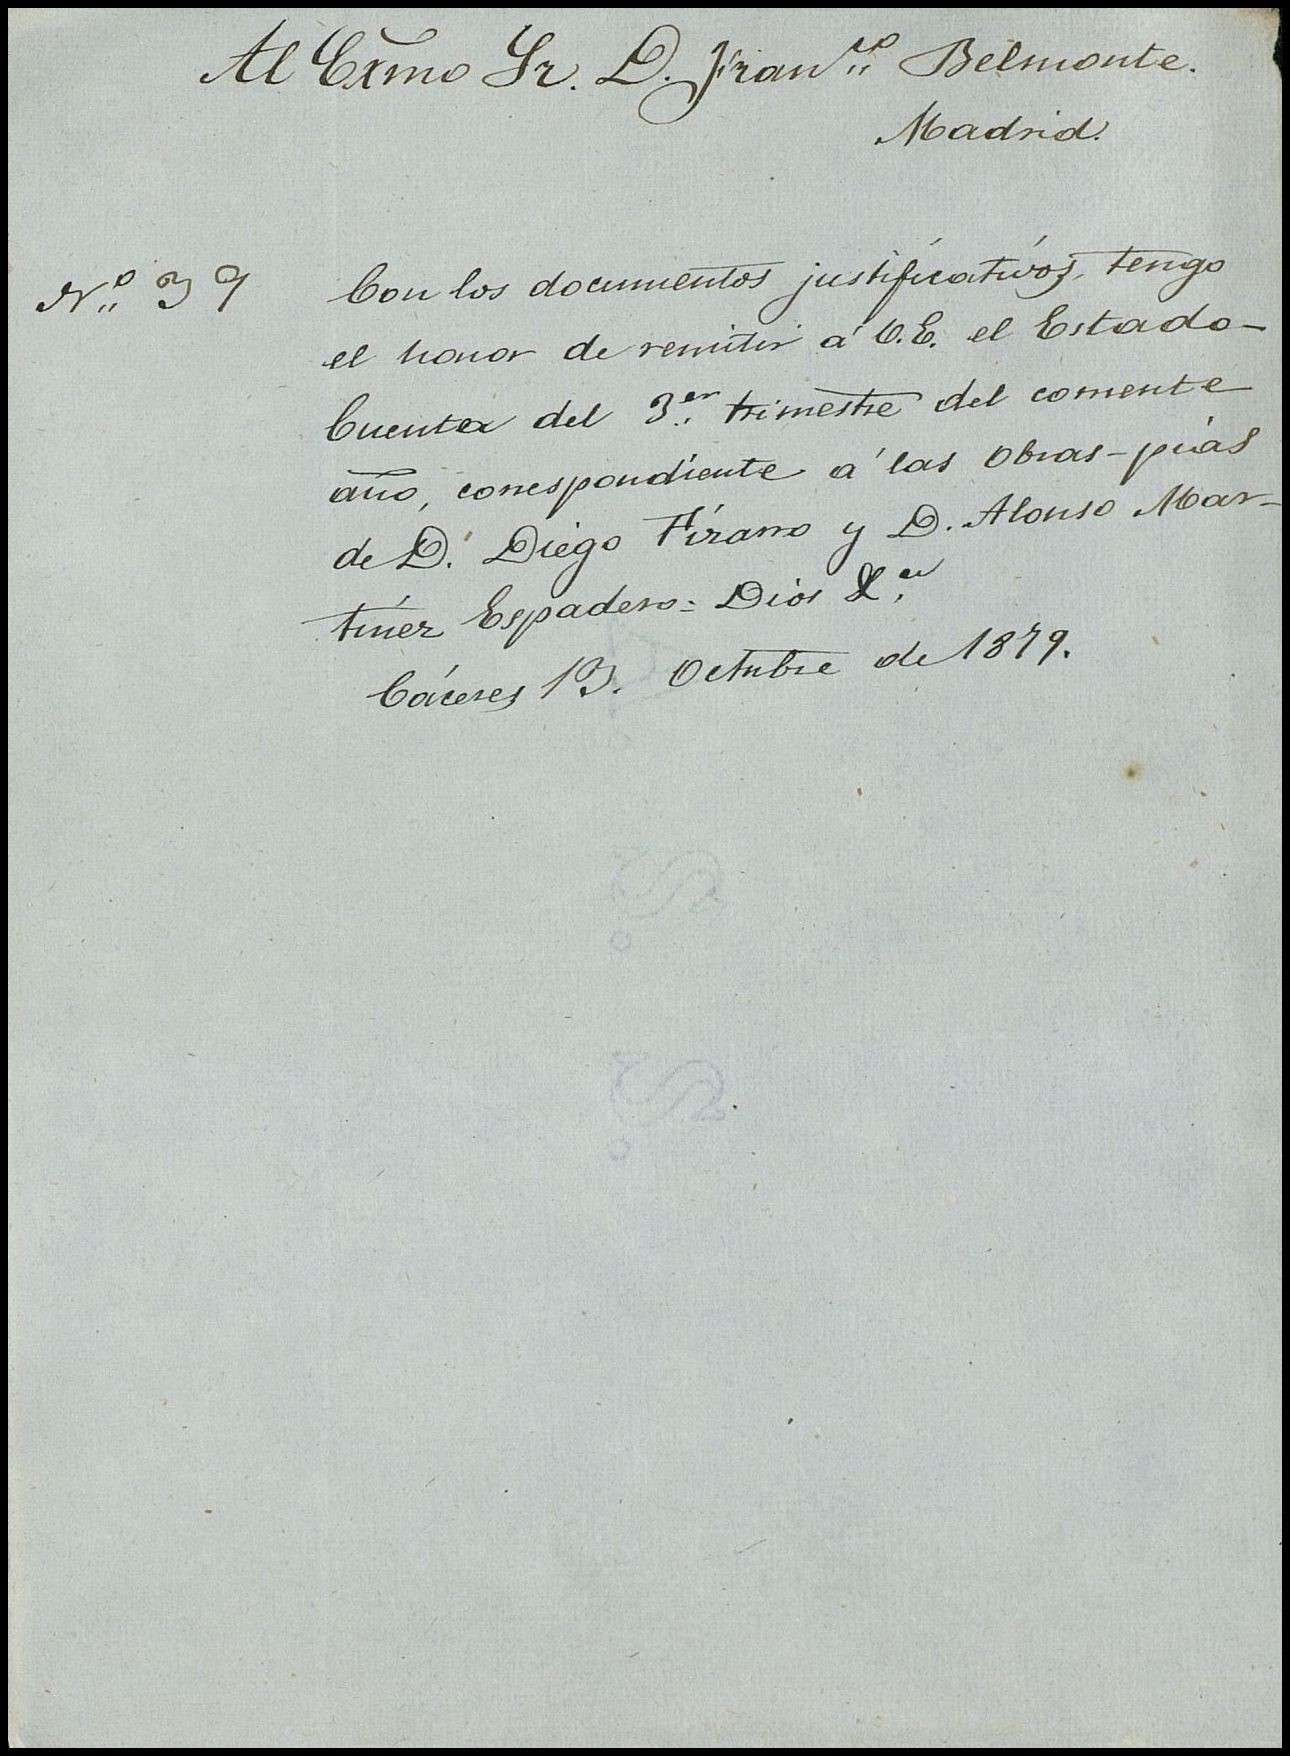 Al Exmo Sr. D. Fran.co Belmonte.
Madrid.
N.o 39 Con los documentos justificativos, tengo
el honor de remitir á V.E. el Estado-
Cuenta del 3.er trimestre del corriente
año, correspondiente á las Obras-pias
de D. Diego Pizarro y D. Alonso Mar-
tinez Espadero = Dios &.a
Cáceres 13. Octubre de 1879.